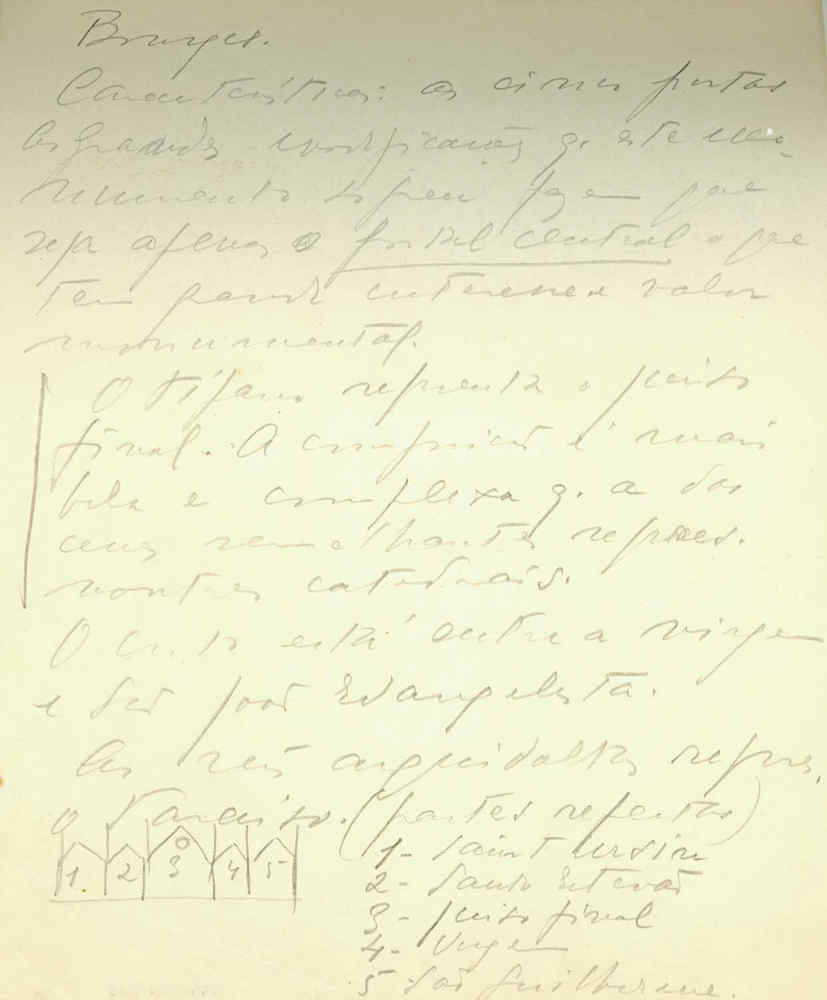 Bourges.
Características: as cinco portas
As grandes modificações q. este mo-
numento sofreu fazem que
seja apenas o portal central o que
tem grande interesse e valor
monumental.
O Tímpano representa o juizo
final. A composição é mais
bela e complexa q. a das
cenas semelhantes repres.
noutras catedrais.
O Cristo está entre a virgem
e São João Evangelista.
As seis arquivoltas repres.
o Paraiso. (partes refeitas)
1- Saint Ursin
2- Santo Estevão
3- juizo final
4- Virgem
5 São Guilherme.
1. 2 3 4 5